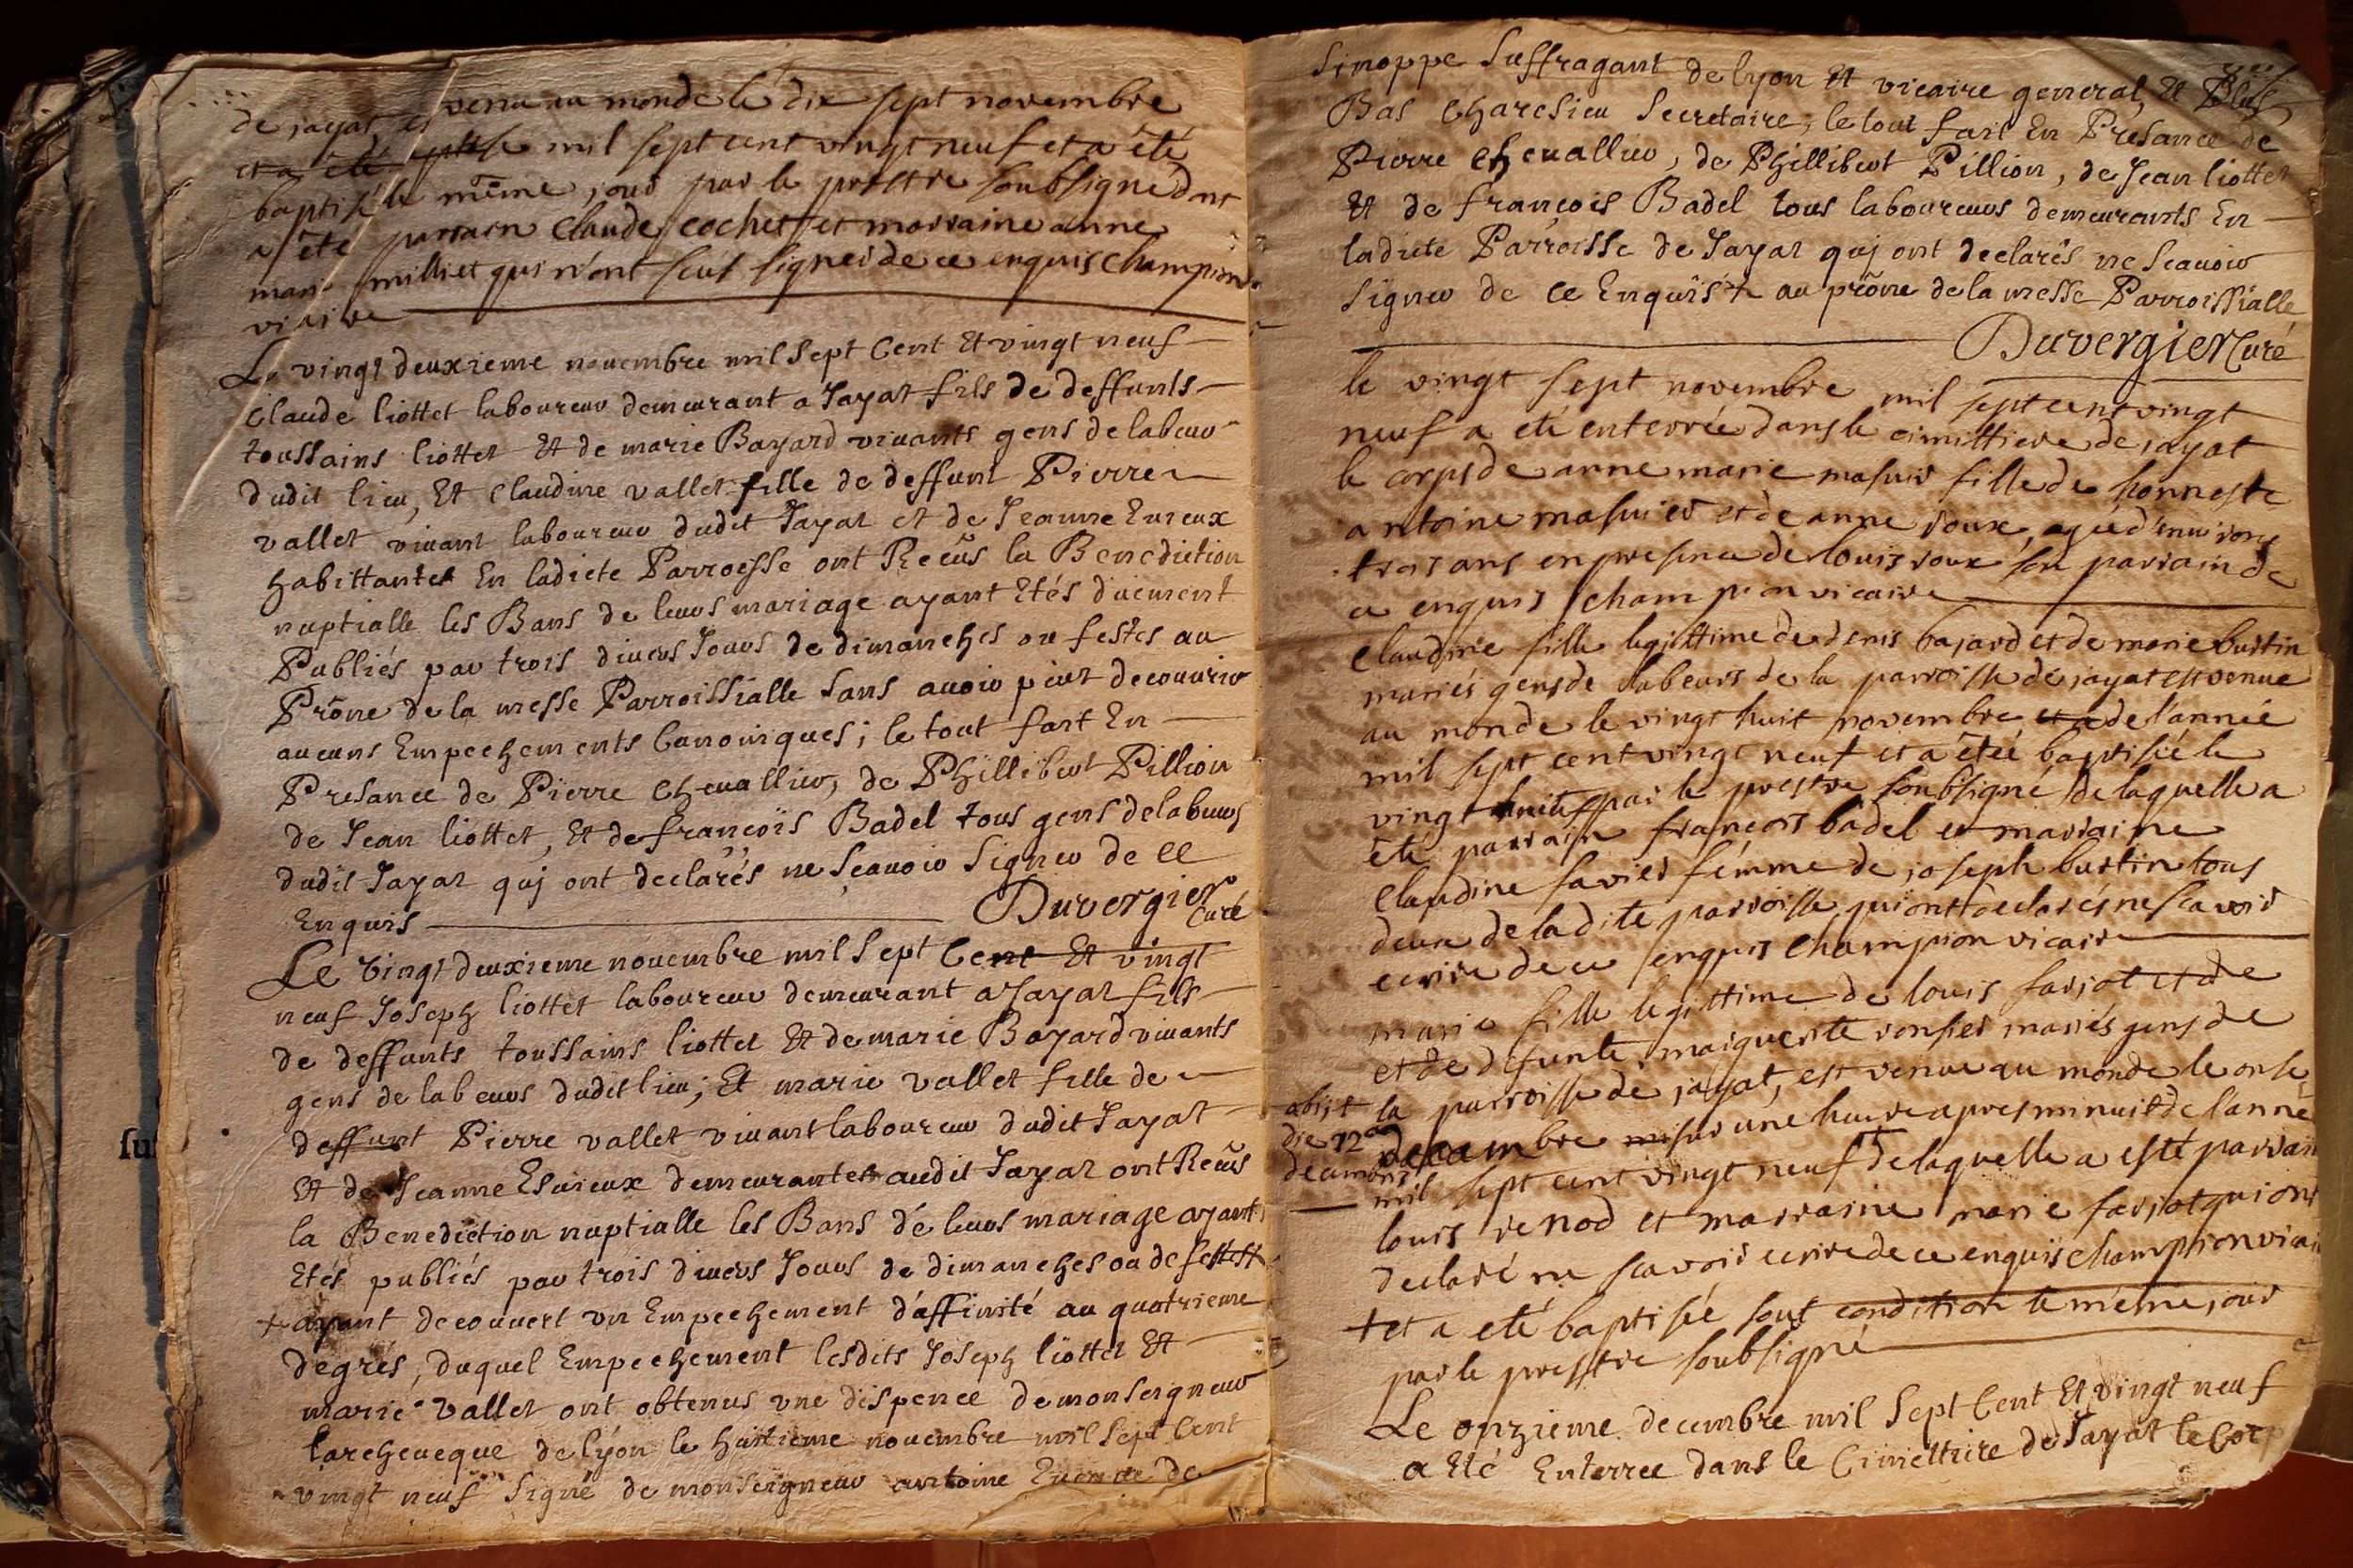 de jayat est venu au monde le dix sept novembre
et a été mil sept cent vingt neuf et a été
baptisé le même jour par le prestre soubsigné dnt
a été parrain Claude cochet et marraine anne
marie milliet qui n'ont sceus signés de ce enquis champion
vicaire
Le vingt deuxieme novembre mil sept Cent Et vingt neuf
Claude liottet laboureur demeurant a Jayat fils de deffunts
toussains liottet Et de marie Bayard vivants gens de labeur
dudit lieu, Et Claudine vallet fille de deffunt Pierre
vallet vivant laboureur dudit Jayat et de Jeanne Eureux
habittantes En ladicte Parroisse ont Recûs la Benediction
nuptialle les Bans de leurs mariage ayant Etés düement
Publiés par trois divers Jours de dimanches ou festes au
Prône de la messe Parroissialle sans avoir peut decouvrir
aucuns Empechements Canoniques; le tout fait En
Presance de Pierre Chevallier, de Phillibert Pillion
de Jean liottet, Et de françois Badel tous gens de labeurs
dudit Jayat quj ont declarés ne Scavoir Signer de ce
Enquis Duvergier Curé
Le vingt deuxieme novembre mil Sept Cent Et vingt
neuf Joseph liottet laboureur demeurant a Jayat fils
de deffunts toussains liottet Et de marie Bayard vivants
gens de labeurs dudit lieu; Et marie vallet fille de
deffunt Pierre vallet vivant laboureur dudit Jayat
Et de Jeanne demeurantes audit Jayat ont Recûs
la Benediction nuptialle les Bans de leurs mariage ayants
Etés publiés par trois divers Jours de dimanches ou de festes +
+ ayant decouvert un Empechement d'affinité au quatrieme
degrés, duquel Empechement lesdits Joseph liottet Et
marie vallet ont obtenus une dispence de monseigneur
larcheveque de lyon le huitieme novembre mil Sept Cent
vingt neuf Signé de monseigneur antoine de
Sinoppe Suffragant de lyon Et vicaire general, Et Plus
Bas Charesieu Secretaire, le tout fait En Presance de
Pierre Chevallier, de Phillibert Pillion, de Jean liottet
Et de françois Badel tous laboureurs demeurants En
ladicte Parroisse de Jayat quj ont declarés ne Scavoir
Signer de ce Enquis + au prône de la messe Parroissialle
Duvergier Curé
le vingt sept novembre mil sept cent vingt
neuf a eté enterrée dans le cimittiere de jayat
le corps de anne marie masuir fille de honneste
antoine masuier et de anne roux, agée d'environs
trois ans en presence de louis roux son parrain de
ce enquis champion vicaire
Claudine fille legittime de denis bajard et de marie burtin
mariés gens de labeurs de la parroisse de jayat est venue
au monde le vingt huit novembre et a de l'année
mil sept cent vingt neuf et a étéé baptisée le
vingt huit par le prestre soubsigné de laquelle a
été parrain françois badel et marraine
Claudine favier femme de joseph burtin tous
deux de ladite parroisse, qui ont declarés ne scavoir
ecrire de ce enquis champion vicaire
marie fille legittime de louis farjot et de
et de defunte marguerite ronfier mariés gens de
la parroisse de jayat, est venue au monde le onse
obijt
die 12a
decembris
decembre sur une heure apres minuit de l'année
mil sept cent vingt neuf + de laquelle a esté parrain
louis renod et marraine marie farjot qui ont
declaré ne scavoir ecrire de ce enquis champion vicai
+ et a eté baptisée sous condition le même jour
par le prestre soubsigné
Le onzieme decembre mil Sept Cent Et vingt neuf
a Eté Enterree dans le Cimettiere de Jayat le Corp